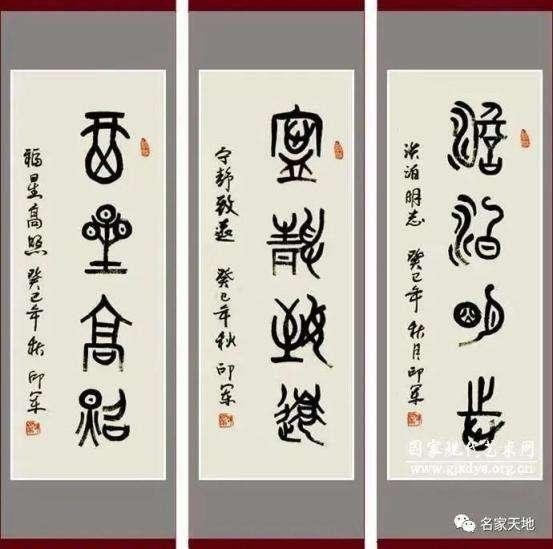 澹泊明志
淡泊明志 癸巳年 秋月 印军
寧靜致遠
宁静致远 癸巳年秋 印军
福星高照
福星高照 癸巳年 秋 印军
国家现代艺术网
www.gjxdys.org.cn
名家天地